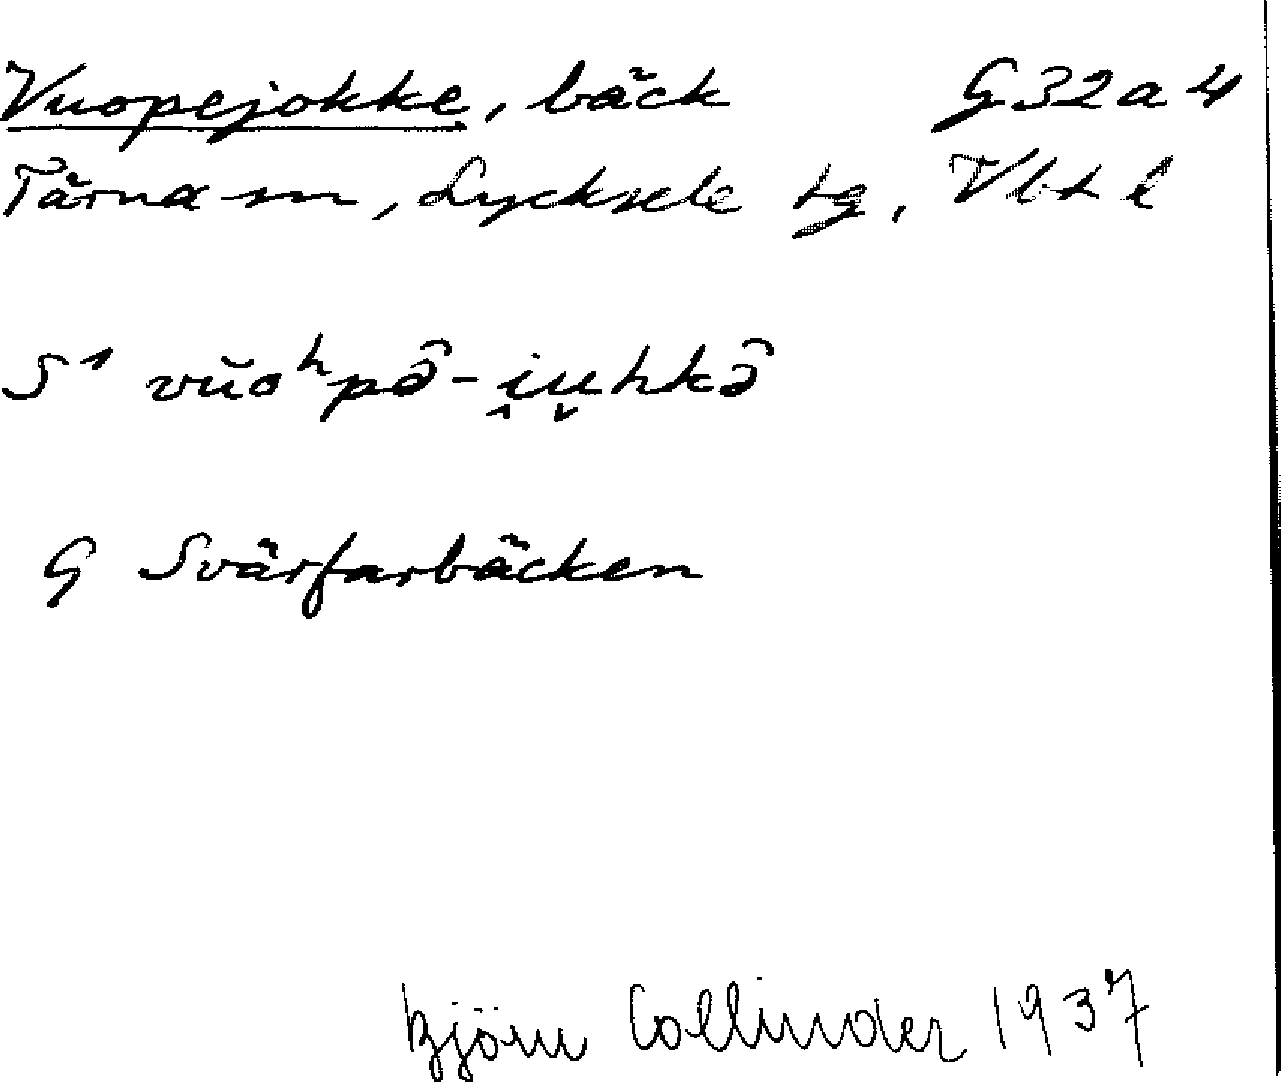 Vuopejokke, bäck G32a4
Tärna sn, Lycksele tg, Vbt l
S¹ vŭoʰpə̂-i̭u̬hkə̂
G Svärfarbäcken
Björn Collinder 1937